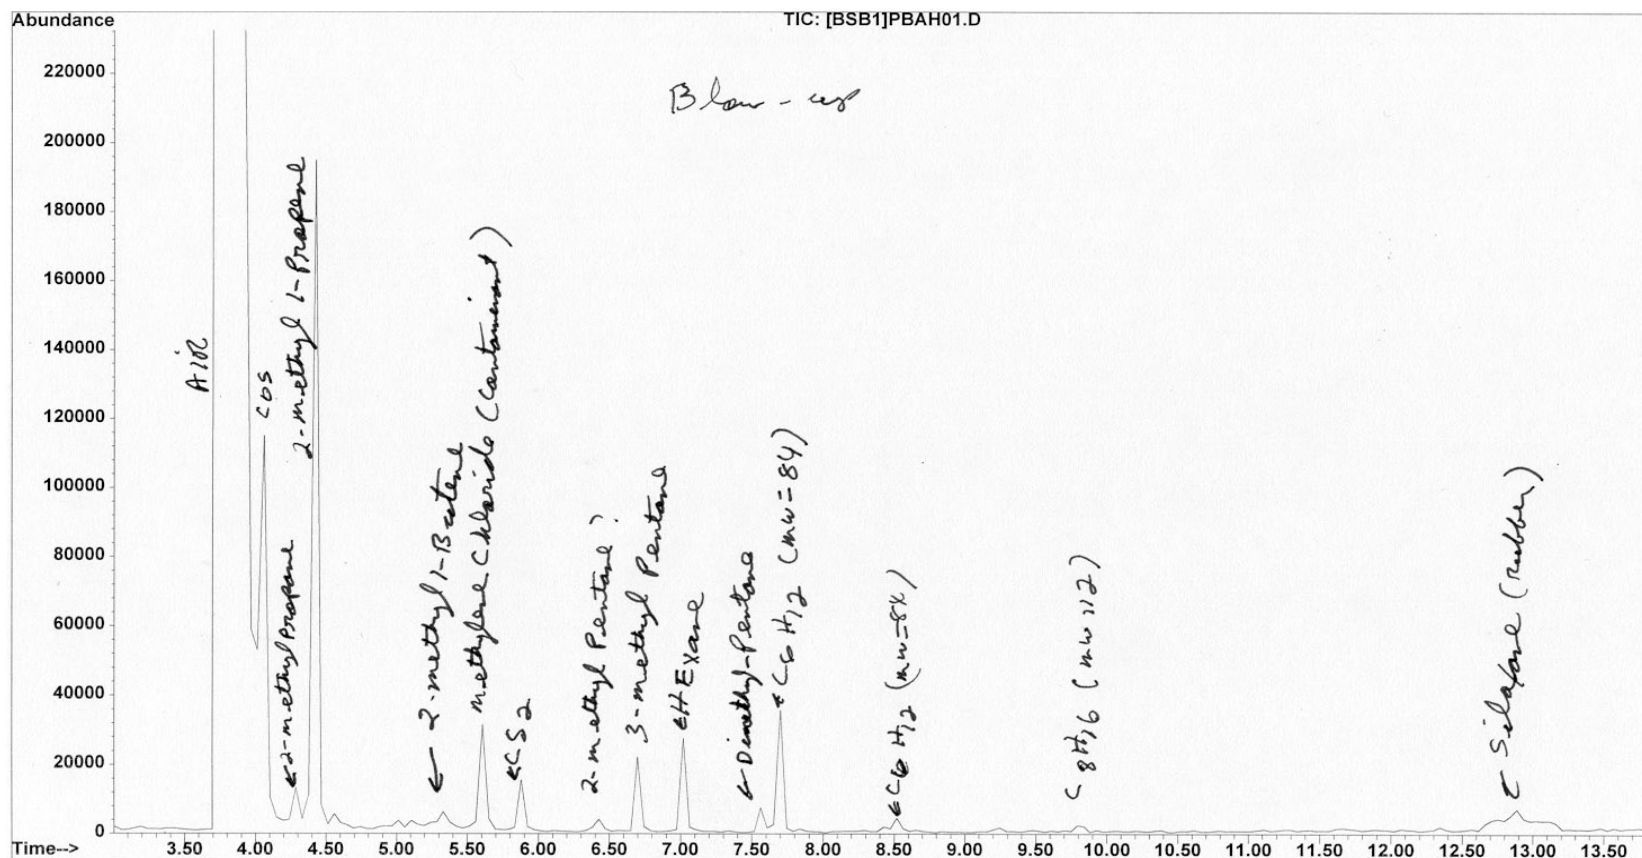 Abundance
TIC: [BSB1]PBAH01.D
Blow-up
220000
200000
180000
160000
140000
120000
100000
80000
60000
40000
20000
0
Air
COS
2-methyl Propane
2-methyl 1-Propene
2-methyl 1-Butene
methylene Chloride (Contaminant)
CS2
2-methyl Pentane
3-methyl Pentane
HExane
Dimethyl-Pentane
C6H12 (mw=84)
C6H12 (mw=84)
C8H16 (mw 112)
(rubber)
Time-->
3.50 4.00 4.50 5.00 5.50 6.00 6.50 7.00 7.50 8.00 8.50 9.00 9.50 10.00 10.50 11.00 11.50 12.00 12.50 13.00 13.50